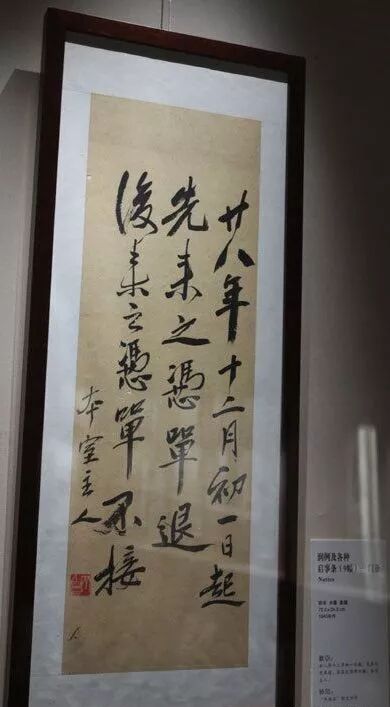 廿八年十二月初一日起
先来之憑單退
後来之憑單不接
本室主人
润例及各种
启事条(9幅)
Notice